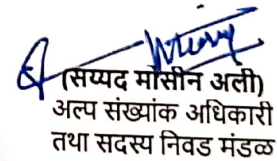 (सय्यद मोसीन अली)
अल्प संख्यांक अधिकारी
तथा सदस्य निवड मंडळ